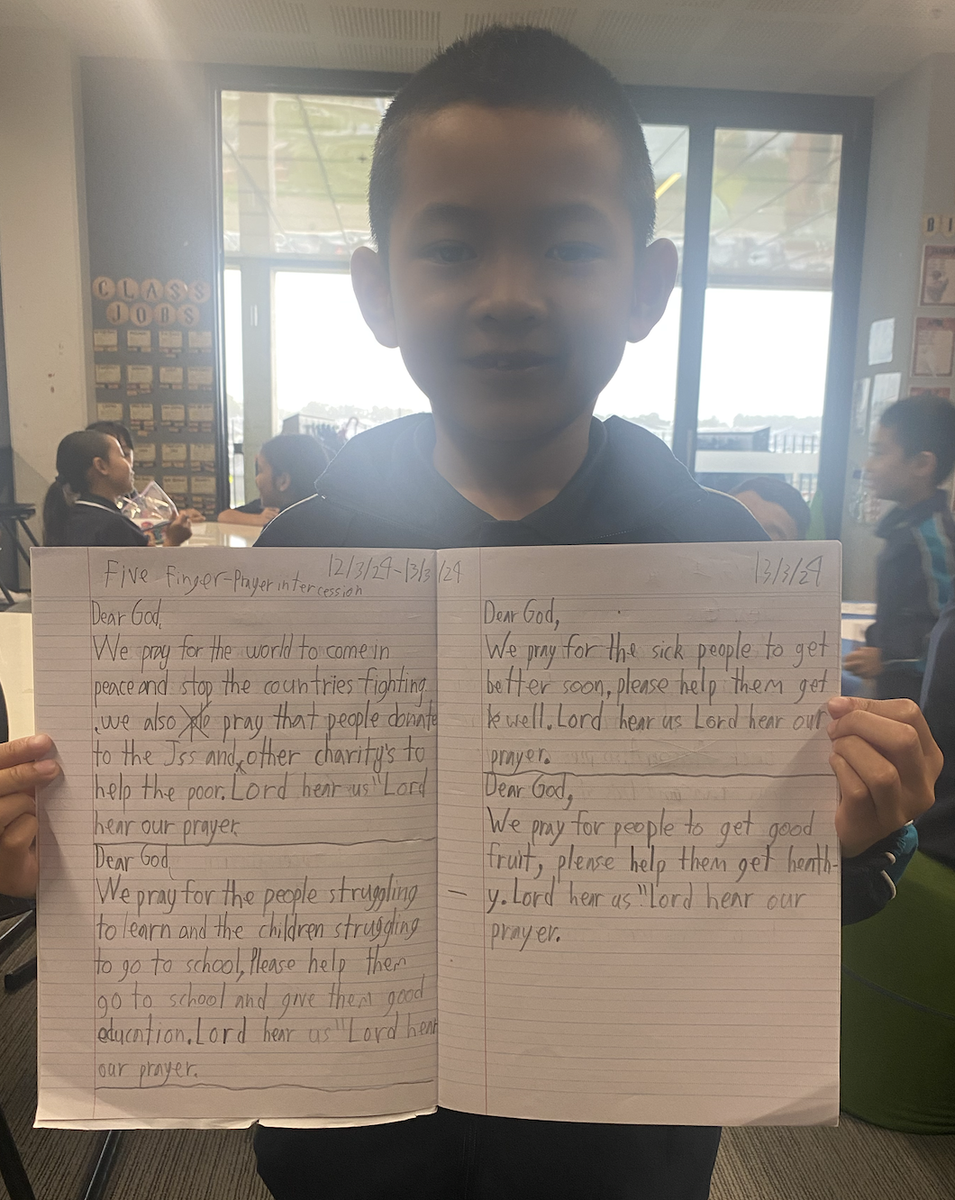 CLASS
JOBS
BI
Five Finger-Prayer intercession 12/3/24-13/3/24
Dear God,
We pray for the world to come in
peace and stop the countries fighting
.we also pray that people donate
to the Jss and other charity's to
help the poor. Lord hear us "Lord
hear our prayer
Dear God
We pray for the people struggling
to learn and the children struggling
to go to school, Please help them
go to school and give them good
education. Lord hear us "Lord hear
our prayer.
13/3/24
Dear God,
We pray for the sick people to get
better soon, please help them get
well. Lord hear us Lord hear our
prayer.
Dear God,
We pray for people to get good
fruit, please help them get henth-
y. Lord hear us "Lord hear our
prayer.